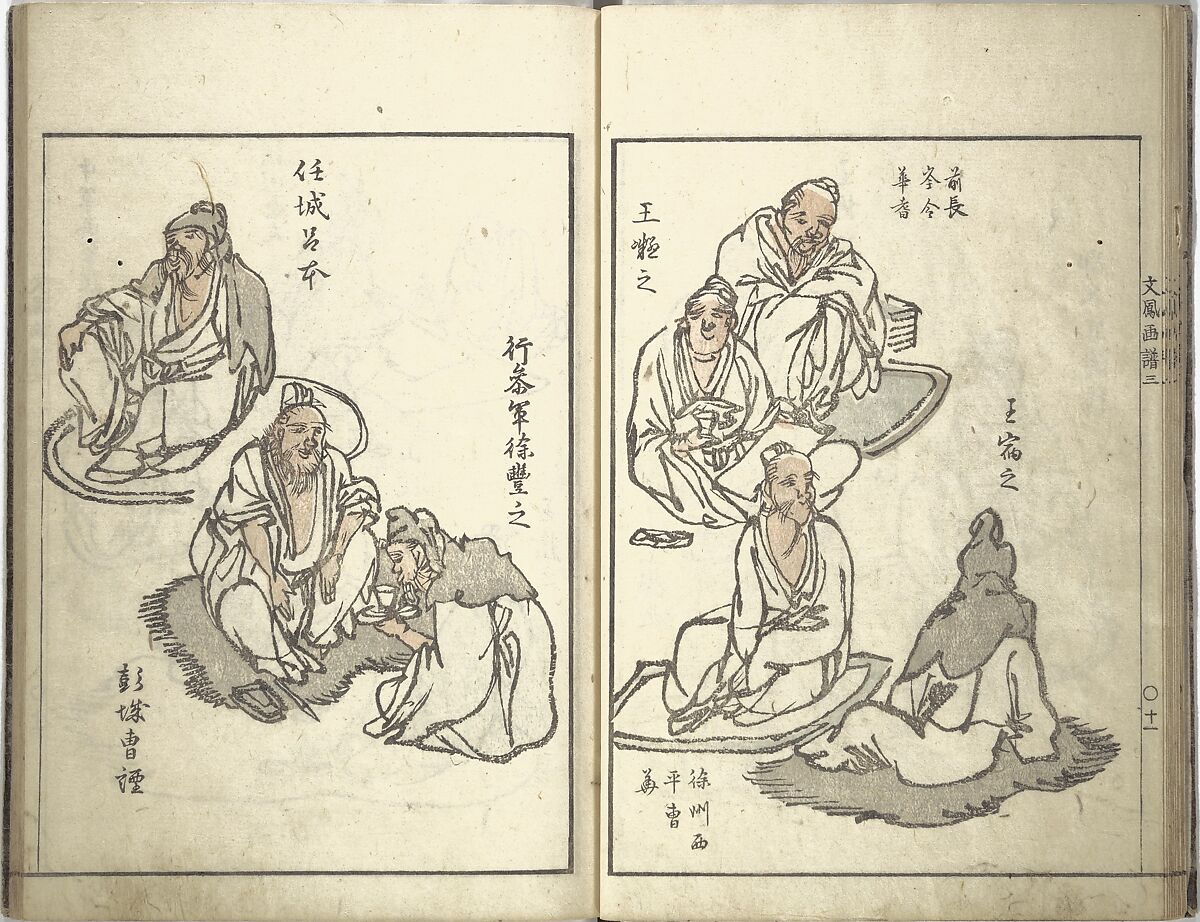 前長
岑令
華耆
王㝛之
王蘊之
徐州西
平曹
華
文鳳画譜三
〇十一
行参軍徐豐之
任城呂本
彭城曹諲